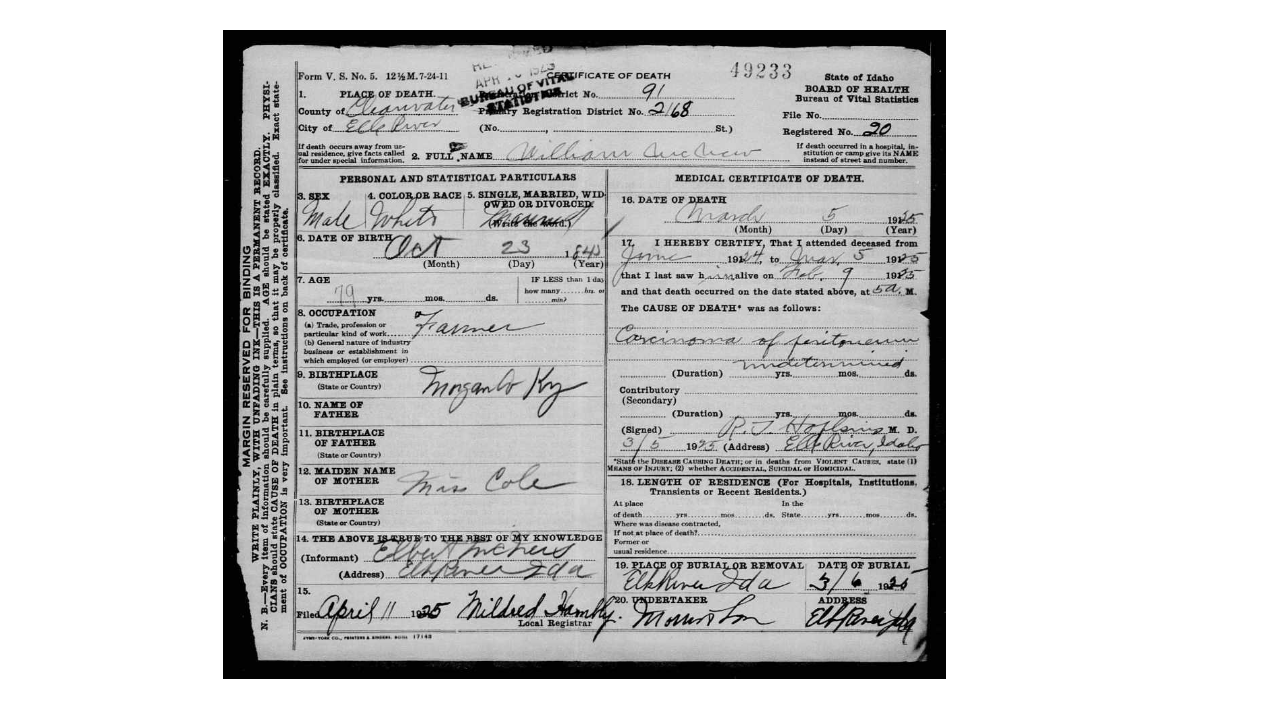 MARGIN RESERVED FOR BINDING
WRITE PLAINLY, WITH UNFADING INK—THIS IS A PERMANENT RECORD.
N. B.—Every item of information should be carefully supplied. AGE should be stated EXACTLY. PHYSI-
CIANS should state CAUSE OF DEATH in plain terms, so that it may be properly classified. Exact state-
ment of OCCUPATION is very important. See instructions on back of certificate.
Form V. S. No. 5. 12½M. 7-24-11
CERTIFICATE OF DEATH
49233
APR 1925
BUREAU OF VITAL
STATISTICS
State of Idaho
BOARD OF HEALTH
Bureau of Vital Statistics
File No.
Registered No. 20
1. PLACE OF DEATH.
County of Clearwater
City of Elk River
District No. 91
Primary Registration District No. 2168
(No. , St.)
If death occurs away from us-
ual residence, give facts called
for under special information.
2. FULL NAME William
If death occurred in a hospital, in-
stitution or camp give its NAME
instead of street and number.
PERSONAL AND STATISTICAL PARTICULARS
3. SEX
Male
4. COLOR OR RACE
White
5. SINGLE, MARRIED, WID-
OWED OR DIVORCED
(Write the word.)
6. DATE OF BIRTH
Oct 23 184
(Month) (Day) (Year)
7. AGE
79 yrs. mos. ds.
IF LESS than 1 day
how many hrs. or
min?
8. OCCUPATION
(a) Trade, profession or
particular kind of work Farmer
(b) General nature of industry
business or establishment in
which employed (or employer)
9. BIRTHPLACE
(State or Country)
Morgan Co Ky
10. NAME OF
FATHER
11. BIRTHPLACE
OF FATHER
(State or Country)
12. MAIDEN NAME
OF MOTHER
Miss Cole
13. BIRTHPLACE
OF MOTHER
(State or Country)
14. THE ABOVE IS TRUE TO THE BEST OF MY KNOWLEDGE
(Informant) Elbert
(Address) Elk River Ida
15.
Filed April 11 1925 Mildred Hamby.
Local Registrar
SYMS-YORK CO., PRINTERS & BINDERS, BOISE 17145
MEDICAL CERTIFICATE OF DEATH.
16. DATE OF DEATH
March 5 1925
(Month) (Day) (Year)
17. I HEREBY CERTIFY, That I attended deceased from
June 1924, to Mar. 5 1925
that I last saw him alive on Feb. 9 1925
and that death occurred on the date stated above, at 5 a. M.
The CAUSE OF DEATH* was as follows:
Carcinoma of peritoneum
undetermined
(Duration) yrs. mos. ds.
Contributory
(Secondary)
(Duration) yrs. mos. ds.
(Signed) M. D.
3/5 1925 (Address) Elk River, Idaho
*State the DISEASE CAUSING DEATH; or in deaths from VIOLENT CAUSES, state (1)
MEANS OF INJURY; (2) whether ACCIDENTAL, SUICIDAL or HOMICIDAL.
18. LENGTH OF RESIDENCE (For Hospitals, Institutions.
Transients or Recent Residents.)
At place In the
of death yrs. mos. ds. State yrs. mos. ds.
Where was disease contracted,
If not at place of death?
Former or
usual residence
19. PLACE OF BURIAL OR REMOVAL
Elk River Ida
DATE OF BURIAL
3/6 1925
20. UNDERTAKER
ADDRESS
Elk River